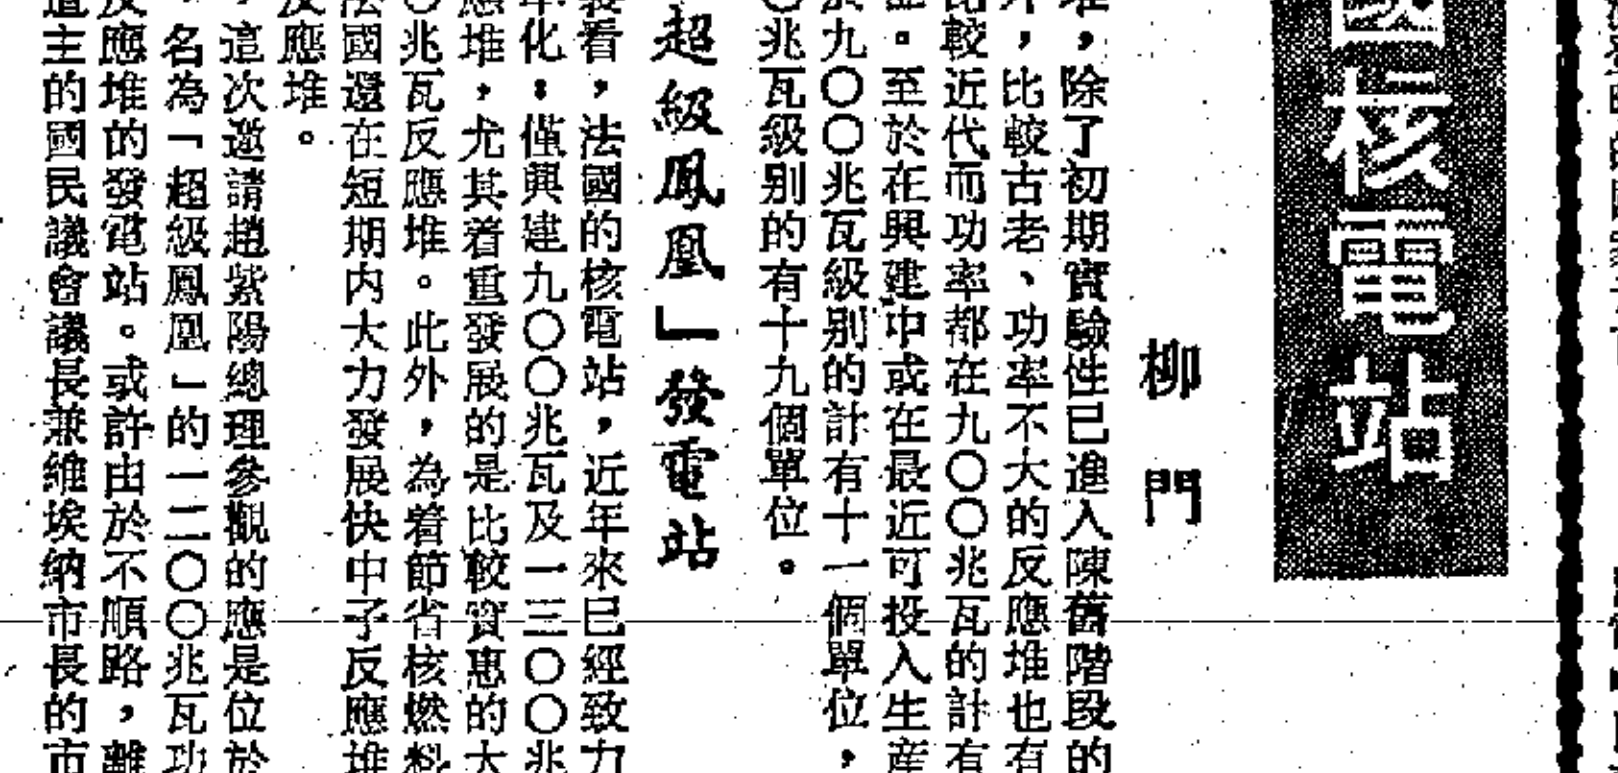 國核電站
柳門
堆，除了初期實驗性已進入陳舊階段的
外，比較古老、功率不大的反應堆也有
比較近代而功率都在九〇〇兆瓦的計有
。至於在興建中或在最近可投入生産
於九〇〇兆瓦級别的計有十一個單位，
〇兆瓦級别的有十九個單位。
超級鳳凰」發電站
看，法國的核電站，近年來已經致力
年化；僅興建九〇〇兆瓦及一三〇〇兆
應堆，尤其着重發展的是比較實惠的大
〇兆瓦反應堆。此外，為着節省核燃料
法國還在短期内大力發展快中子反應堆
反應堆。
，這次邀請趙紫陽總理參觀的應是位於
，名為「超級鳳凰」的一二〇〇兆瓦功
反應堆的發電站。或許由於不順路，離
道主的國民議會議長兼維埃納市長的市